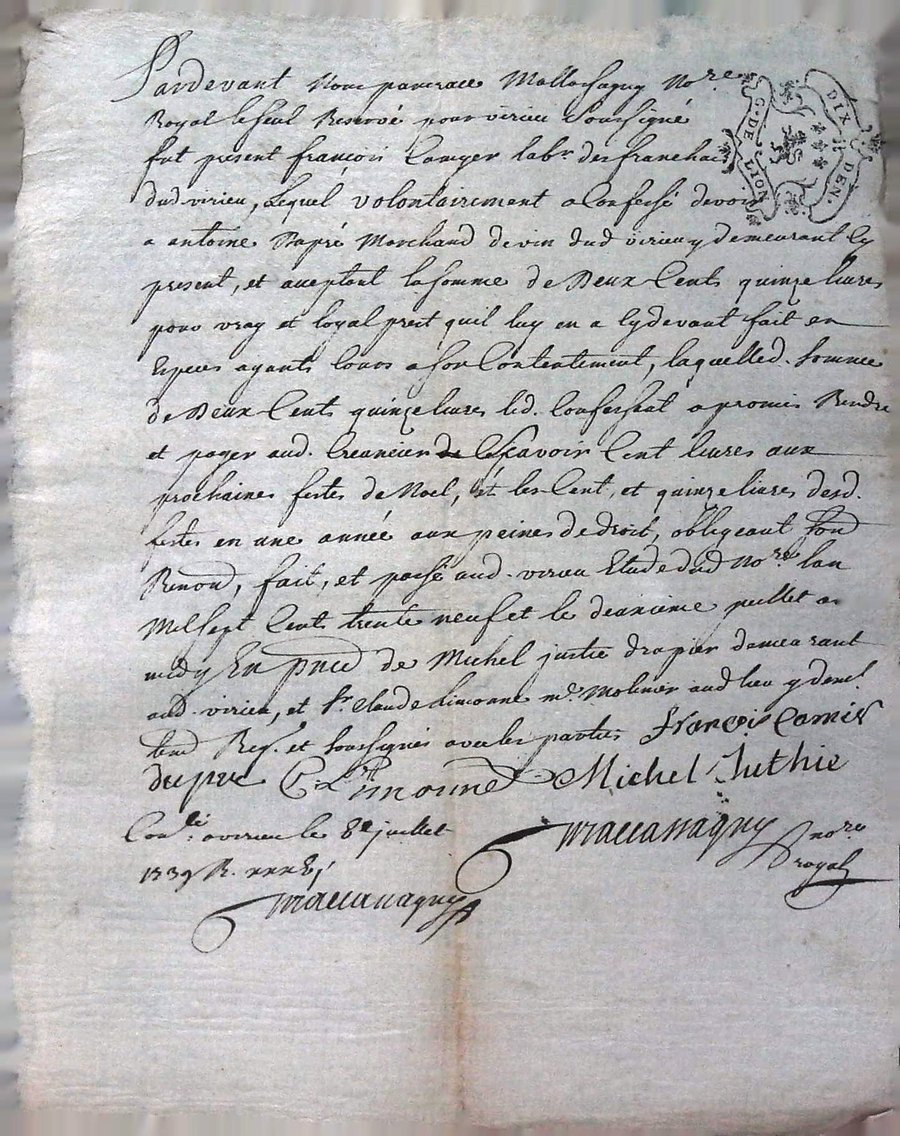 Pardevant Nous pancrace Mallassagny No.re
Royal le seul Reservé pour virieu Soussigné
fut present françois Camyer lab.r des franchai
dud virieu, Lequel volontairement a Confessé devoir
a antoine Dupré Marchand de vin dud virieu y demeurant Cy
present, et aceptant la somme de Deux Cents quinze livres
pour vray et loyal prest quil luy en a Cydevant fait en
Espèces ayants Cours a son Contentement, laquelled. Somme
de Deux Cents quinze livres led. Confessant a promis Rendre
et payer aud. Creancier Scavoir Cent livres aux
prochaines festes de Noel, et les Cent, et quinze livres desd.
festes en une année aux peines de droit, obligeant
Renond, fait, et passé aud. virieu Etude dud No.re lan
Mil sept Cents trente neuf et le deuxieme juillet a
midy En pnce de Michel justie drapier demeurant
aud. virieu, et S.r Claude Limonne m.e Molinier aud lieu y dem.t
Req. et soussignés avec les parties françois Camier
dupré C Limonne Michel Juthie
Con.lé a virieu le 8e juillet
1739 R.
no.re
royal
G. DE LION
DIX DEN.